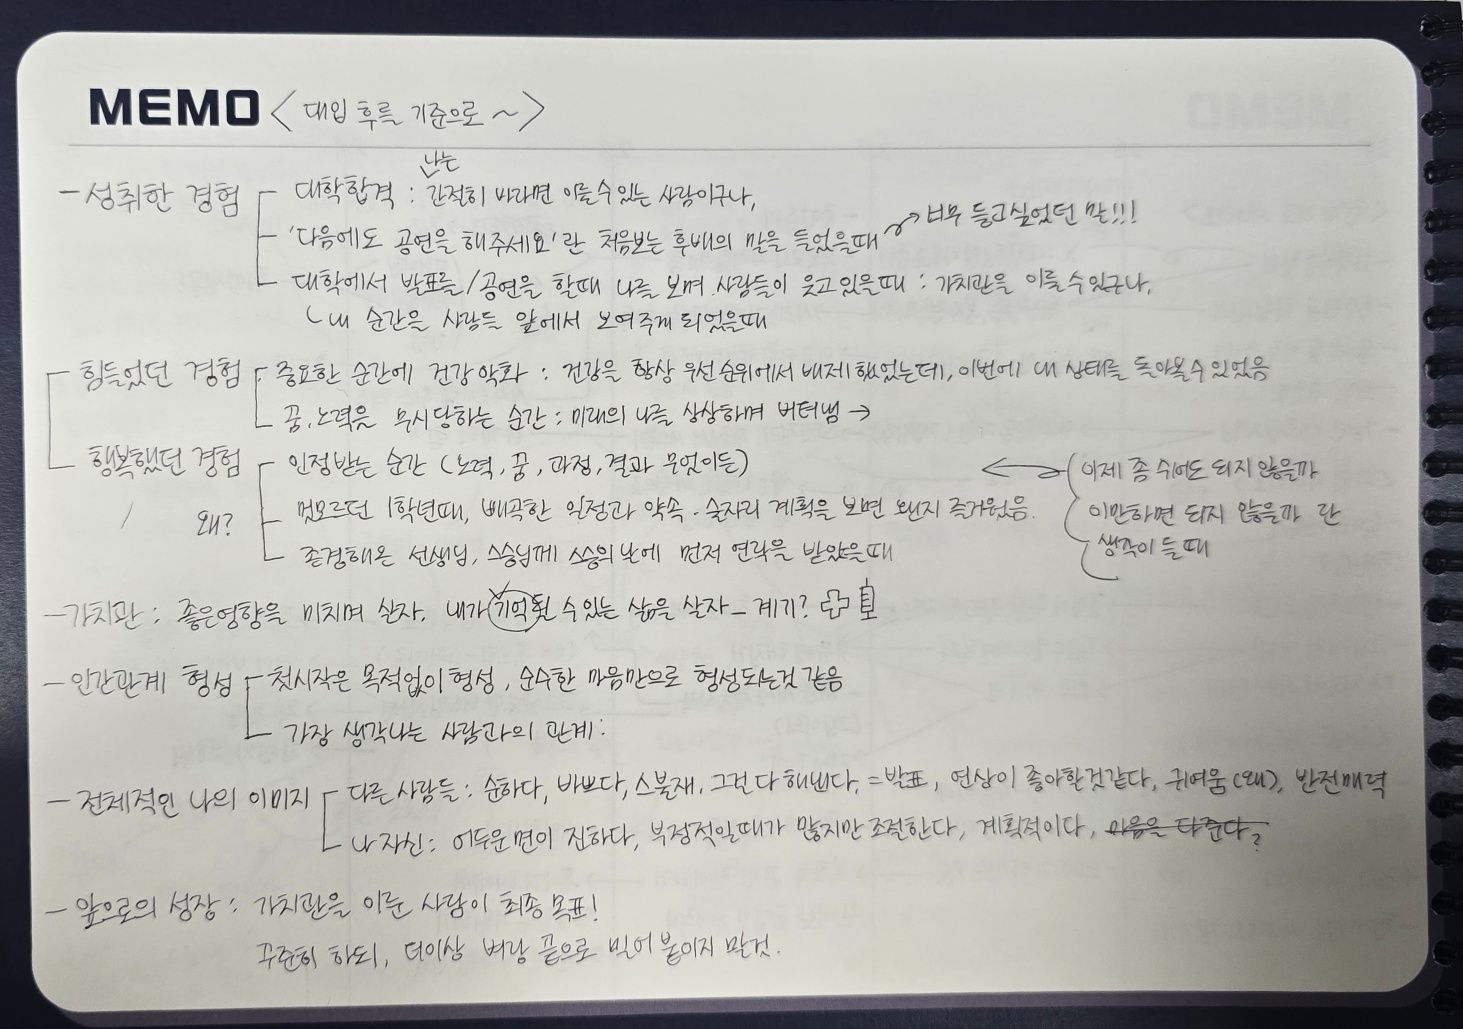 MEMO <대입 후를 기준으로 ~>
나는
- 성취한 경험 대학합격 : 간절히 바라면 이룰 수 있는 사람이구나,
'다음에도 공연을 해주세요'란 처음보는 후배의 말을 들었을때 → 너무 듣고싶었던 말!!!
대학에서 발표를/공연을 할때 나를 보며 사람들이 웃고있을때 : 가치관을 이룰 수 있구나,
ㄴ 내 순간을 사람들 앞에서 보여주게 되었을때
힘들었던 경험 중요한 순간에 건강악화 : 건강을 항상 우선순위에서 배제했었는데, 이번에 내 상태를 돌아볼 수 있었음
꿈, 노력을 무시당하는 순간 : 미래의 나를 상상하며 버텨냄 →
행복했던 경험 인정받는 순간 (노력, 꿈, 과정, 결과 무엇이든) ↔ 이제 좀 쉬어도 되지 않을까
왜? 멋모르던 1학년때, 빼곡한 일정과 약속·술자리 계획을 보면 왠지 즐거웠음. 이만하면 되지 않을까 란
존경해온 선생님, 스승님께 스승의날에 먼저 연락을 받았을때 생각이 들때
- 가치관 : 좋은영향을 미치며 살자, 내가 기억될 수 있는 삶을 살자 - 계기?
- 인간관계 형성 첫시작은 목적없이 형성, 순수한 마음만으로 형성되는것 같음
가장 생각나는 사람과의 관계:
- 전체적인 나의 이미지 다른사람들 : 순하다, 바쁘다, 스불재, 그걸 다 해낸다, = 발표, 연상이 좋아할것같다, 귀여움(왜), 반전매력
나 자신 : 어두운면이 진하다, 부정적일때가 많지만 조절한다, 계획적이다,
- 앞으로의 성장 : 가치관을 이룬 사람이 최종 목표!
꾸준히 하되, 더이상 벼랑 끝으로 밀어 붙이지 말것.